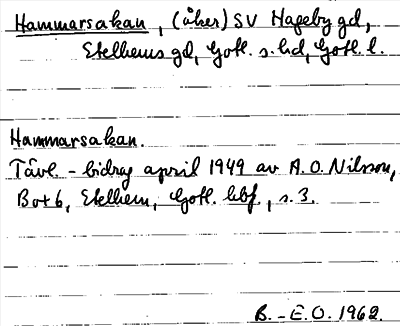 Hammarsakan, (åker) SV Hageby gd,
Etelhems gd, Gotl. s. hd, Gotl. l.
Hammarsakan.
Tävl.-bidrag april 1949 av A.O. Nilsson,
Box 6, Etelhem, Gotl. hbf., s. 3.
B.-E.O. 1962.